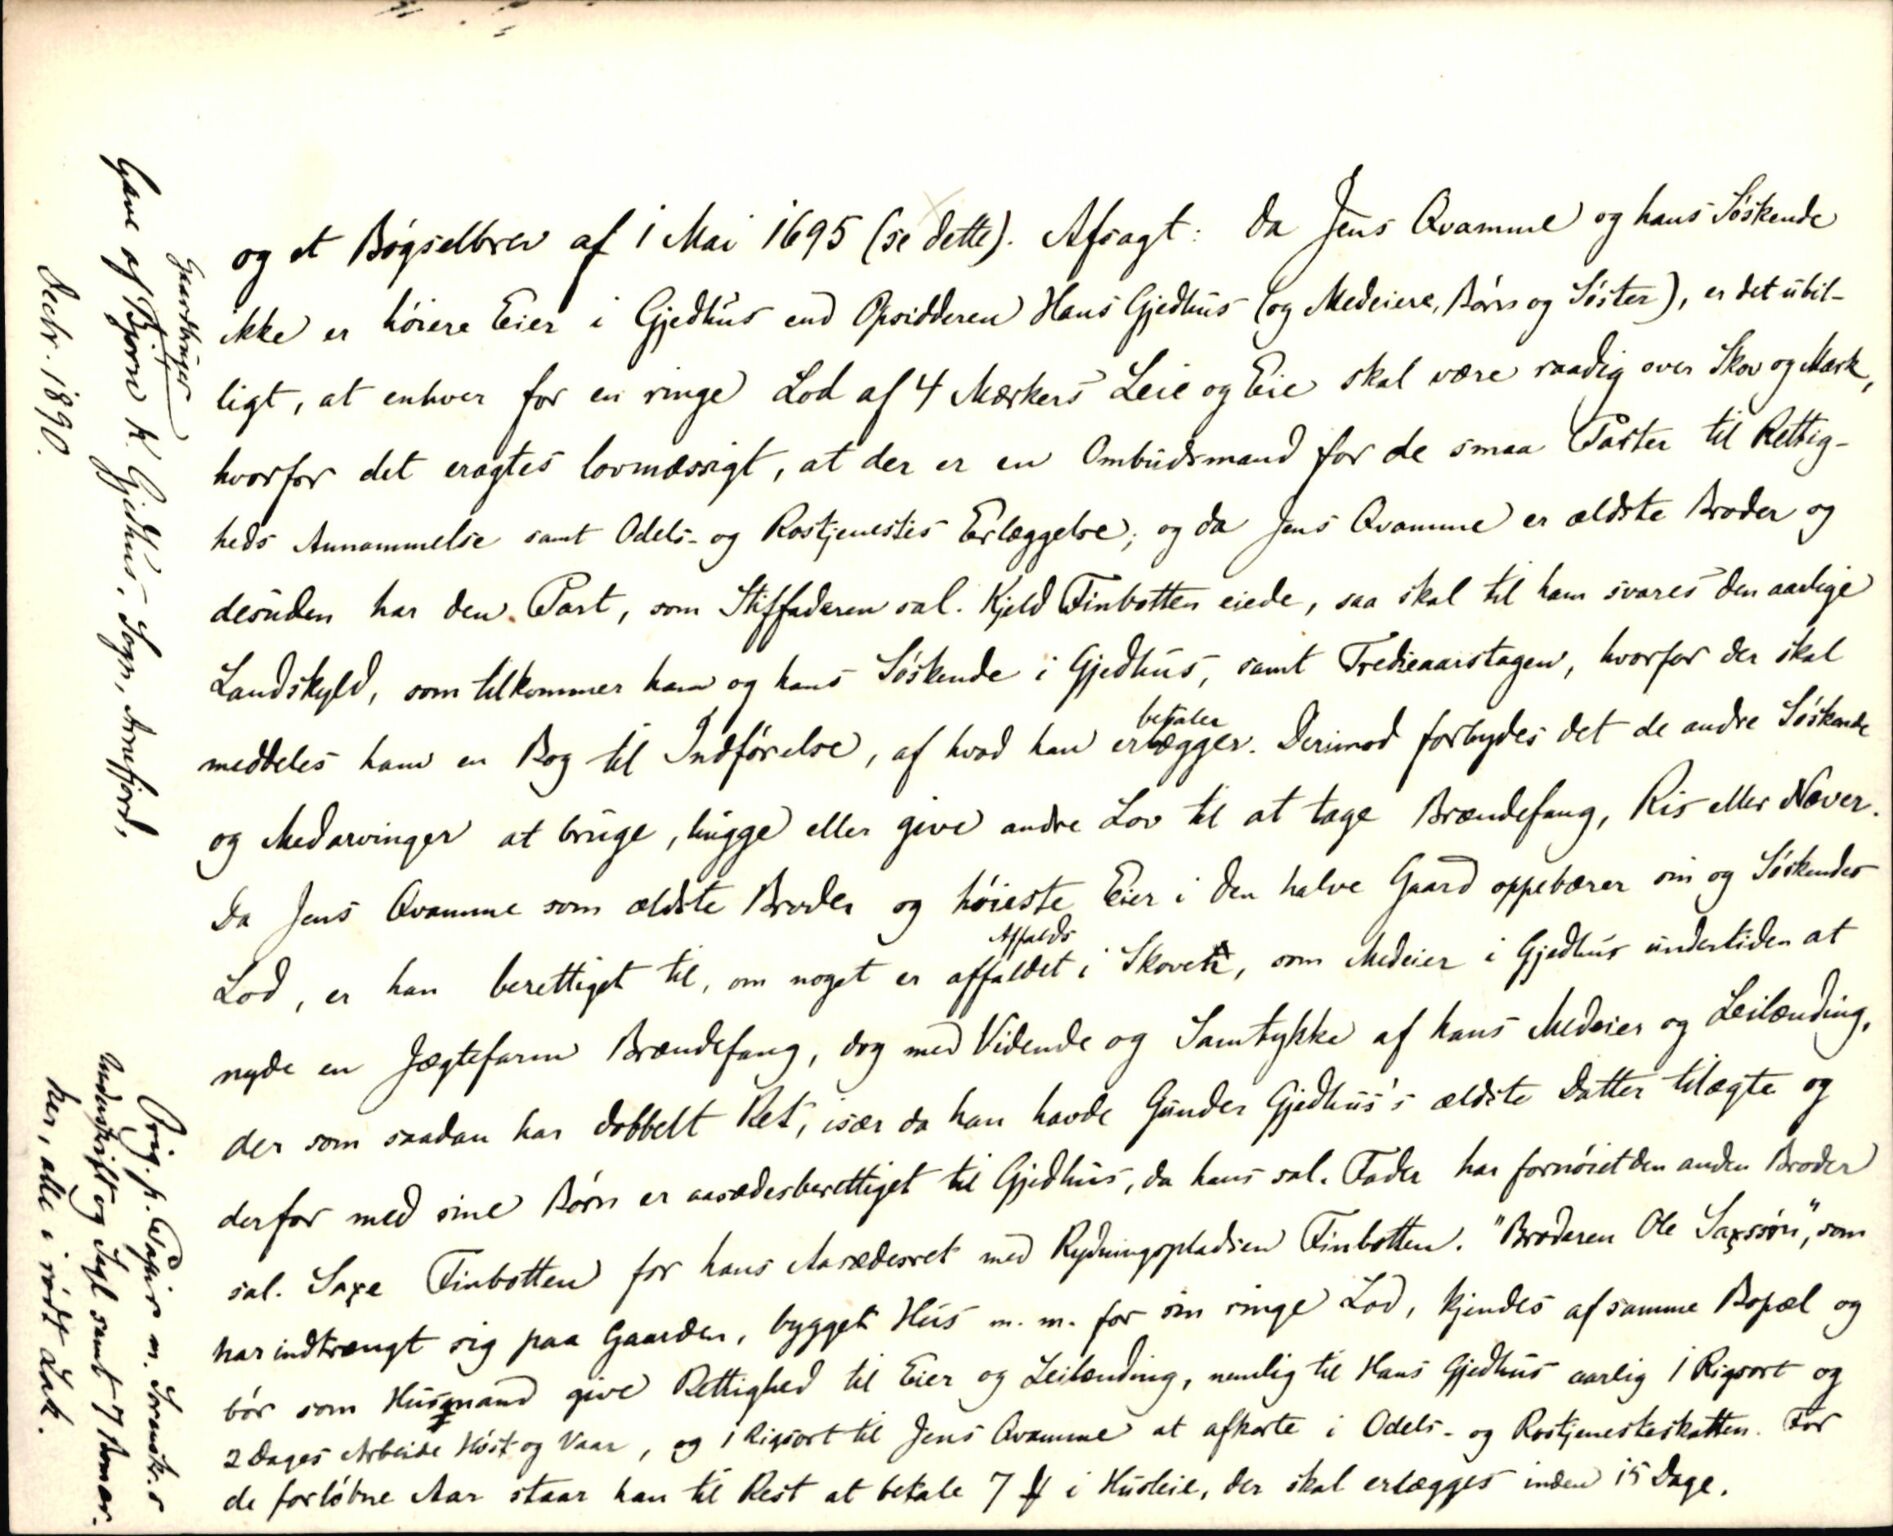 og et Bøgselbrev af 1 Mai 1695 (se dette). Afsagt: da Jens Qvamme og hans Søskende
ikke er høiere Eier i Gjedhus end Opsidderen Hans Gjedhus (og Medeiere, Børn og Søster), er det ubil-
ligt, at enhver for en ringe Lod af 4 Mærkers Leie og Eie skal være raadig over Skov og Mark,
hvorfor det eragtes lovmæssigt, at der er en Ombudsmand for de smaa Parter til Rettig-
heds Annammelse samt Odels- og Rostjenestes Erlæggelse; og da Jens Qvamme er ældste Broder og
desuden har den Part, som Stiffaderen sal. Kjeld Finbotten eiede, saa skal til ham svares den aarlige
Landskyld, som tilkommer ham og hans Søskende i Gjedhus, samt Tredieaarstagen, hvorfor der skal
meddeles ham en Bog til Indførelse, af hvad han erlægger. Derimod forbydes det de andre Søskende
betaler
og Medarvinger at bruge, hugge eller give andre Lov til at tage Brændefang, Ris eller Næver.
Da Jens Qvamme som ældste Broder og høieste Eier i den halve Gaard oppebærer sin og Søskendes
Lod, er han berettiget til, om noget er affaldet i Skoven, som Medeier i Gjedhus undertiden at
Affalds
nyde en Jægtefarm Brændefang, dog med Vidende og Samtykke af hans Medeier og Leilænding,
der som saadan har dobbelt Ret, især da han havde Gunder Gjedhus's ældste Datter tilægte og
derfor med sine Børn er aasædesberettiget til Gjedhus, da hans sal. Fader har fornøiet den anden Broder
sal. Saxe Finbotten for hans Aasædesret med Rydningspladsen Finbotten. "Broderen Ole Saxssøn", som
har indtrængt sig paa Gaarden, bygget Hus m. m. for sin ringe Lod, kjendes af samme Bopæl og
bør som Husmand give Rettighed til Eier og Leilænding, nemlig til Hans Gjedhus aarlig 1 Rigsort og
2 Dages Arbeide Høst og Vaar, og 1 Rigsort til Jens Qvamme at afkorte i Odels- og Rostjenesteskatten. For
de forløbne Aar staar han til Rest at betale 7 ℔ i Husleie, der skal erlægges inden 15 Dage.
Gaardbruger
Gave af Bjørn K. Gjedhus, Sogn, Arnefjord,
Decbr. 1890.
Orig. p. Papir m. Sorenskr.s
Underskrift og Segl samt 7 Andres
her, alle i rødt Lak.